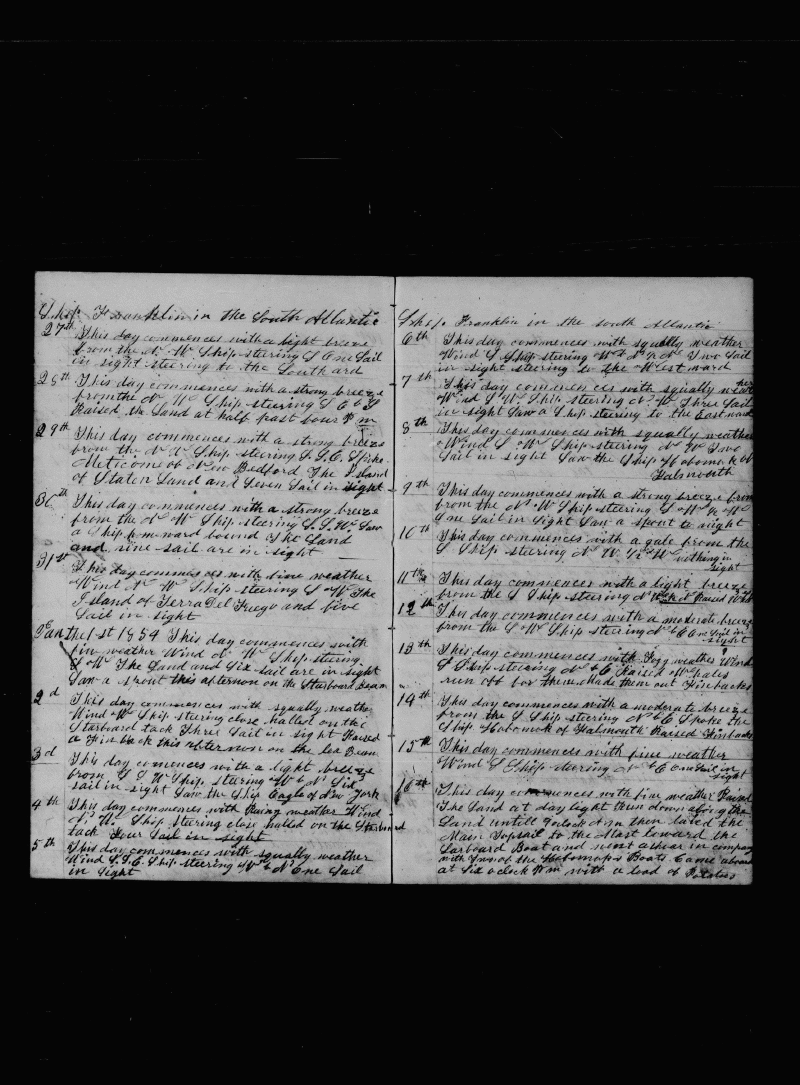 Ship Franklin in the South Atlantic
27th This day commences with a light breeze
from the N W Ship steering S One Sail
in sight steering to the Southard
28th This day commences with a strong breeze
from the N W Ship steering S E &
Raised the Land at half past four P m
29th This day commences with a strong breeze
from the N W Ship steering S.S.E. Spoke
Meticomet of New Bedford The Island
of Staten Land and Seven Sail in sight
30th This day commences with a strong breeze
from the N W Ship steering S.S.W. Saw
a Ship homeward bound The Land
and nine sail are in sight
31st This day commences with fine weather
Wind N W Ship steering S W The
Island of Terra Del Fuego and five
Sail in sight
Jan the 1st 1854 This day commences with
fin weather Wind N W Ship steering
S W The Land and Six sail are in sight
Saw a spout this afternoon on the Starboard Beam
2d This day commences with squally weather
Wind W Ship stering close halled on the
Starboard tack Three Sail in sight Raised
a Finback this afternoon on the Lee Beam
3d This day comences with a light breeze
from S S W Ship steering W & N Six
Sail in sight Saw the Ship Eagle of New York
4th This day commences with Rainy weather Wind
N W Ship Stering close halled on the Starboard
tack Four Sail in sight
5th This day commences with squally weather
Wind S.S.E. Ship steering W & N One Sail
in sight
Ship Franklin in the South Atlantic
6th This day commences with squally weather
Wind S Ship steering W & N Two Sail
in sight steering to the Westward
7th This day commences with squally weather
Wind S W Ship steering N W Three Sail
in sight Saw a Ship steering to the Eastward
8th This day commences with squally weather
Wind S W Ship steering N W Two
Sail in sight Saw the Ship Hobomok of
Falmouth
9th This day commences with a strong breeze from
from the N W Ship steering S W & W
One Sail in Sight Saw a spout to night
10th This day commences with a gale from the
S Ship steering N W nothing in
sight
11th This day commences with a light breeze
from the S Ship steering N Raised
12th This day commences with a moderate breeze
from the S W Ship steering N One Sail in
sight
13th This day commences with Fogy weather Wind
S Ship steering N & E Raised Whales
run off for them Made them out Finbacks
14th This day commences with a moderate breeze
from the S Ship steering N & E Spoke the
Ship Hobomok of Falmouth Raised Finbacks
15th This day commences with fine weather
Wind S Ship steering N & E One Sail in
sight
16th This day commences with fine weather Raised
The Land at day light then down along the
Land untill 7oclock A m then laved the
Main Topsail to the Mast lowered the
Larboard Boat and went ashore in company
with two of the Hobomok's Boats Came aboard
at Six oclock P m with a load of Potatoes